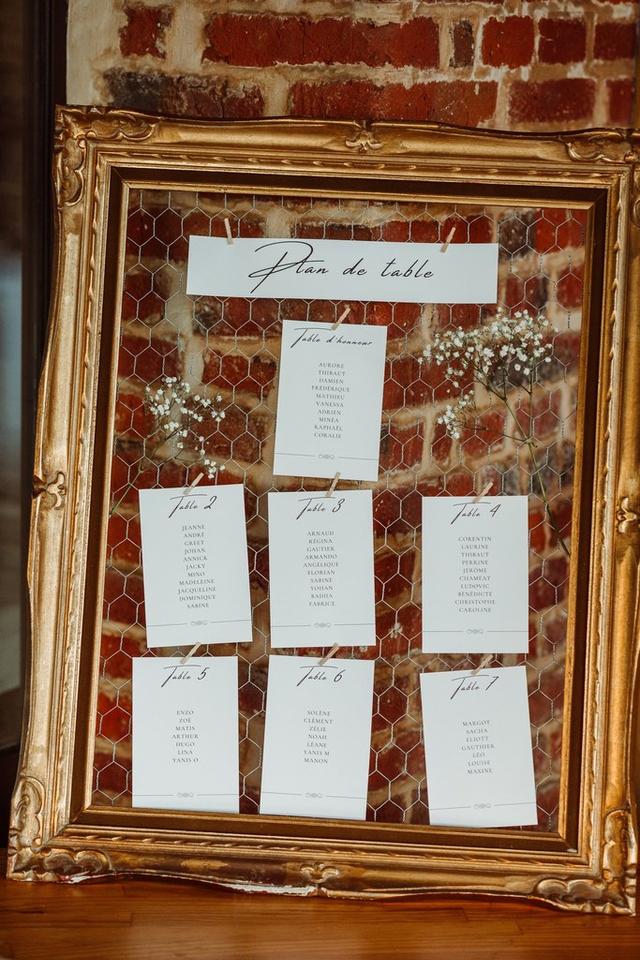 Plan de table
Table d'honneur
AURORE
THIBAUT
DAMIEN
FRÉDÉRIQUE
MATHIEU
VANESSA
ADRIEN
MINÉA
RAPHAËL
CORALIE
Table 2
JEANNE
ANDRÉ
GREET
JOHAN
ANNICK
JACKY
MINO
MADELEINE
JACQUELINE
DOMINIQUE
SABINE
Table 3
ARNAUD
RÉGINA
GAUTIER
ARMANDO
ANGÉLIQUE
FLORIAN
SABINE
YOHAN
RADIJA
FABRICE
Table 4
CORENTIN
LAURINE
THIBAUT
PERRINE
JÉRÔME
CHAMÉAT
LUDOVIC
BÉNÉDICTE
CHRISTOPHE
CAROLINE
Table 5
ENZO
ZOÉ
MATIS
ARTHUR
HUGO
LINA
YANIS O
Table 6
SOLÈNE
CLÉMENT
ZÉLIE
NOAH
LÉANE
YANIS M
MANON
Table 7
MARGOT
SACHA
ELIOTT
GAUTHIER
LÉO
LOUISE
MAXINE